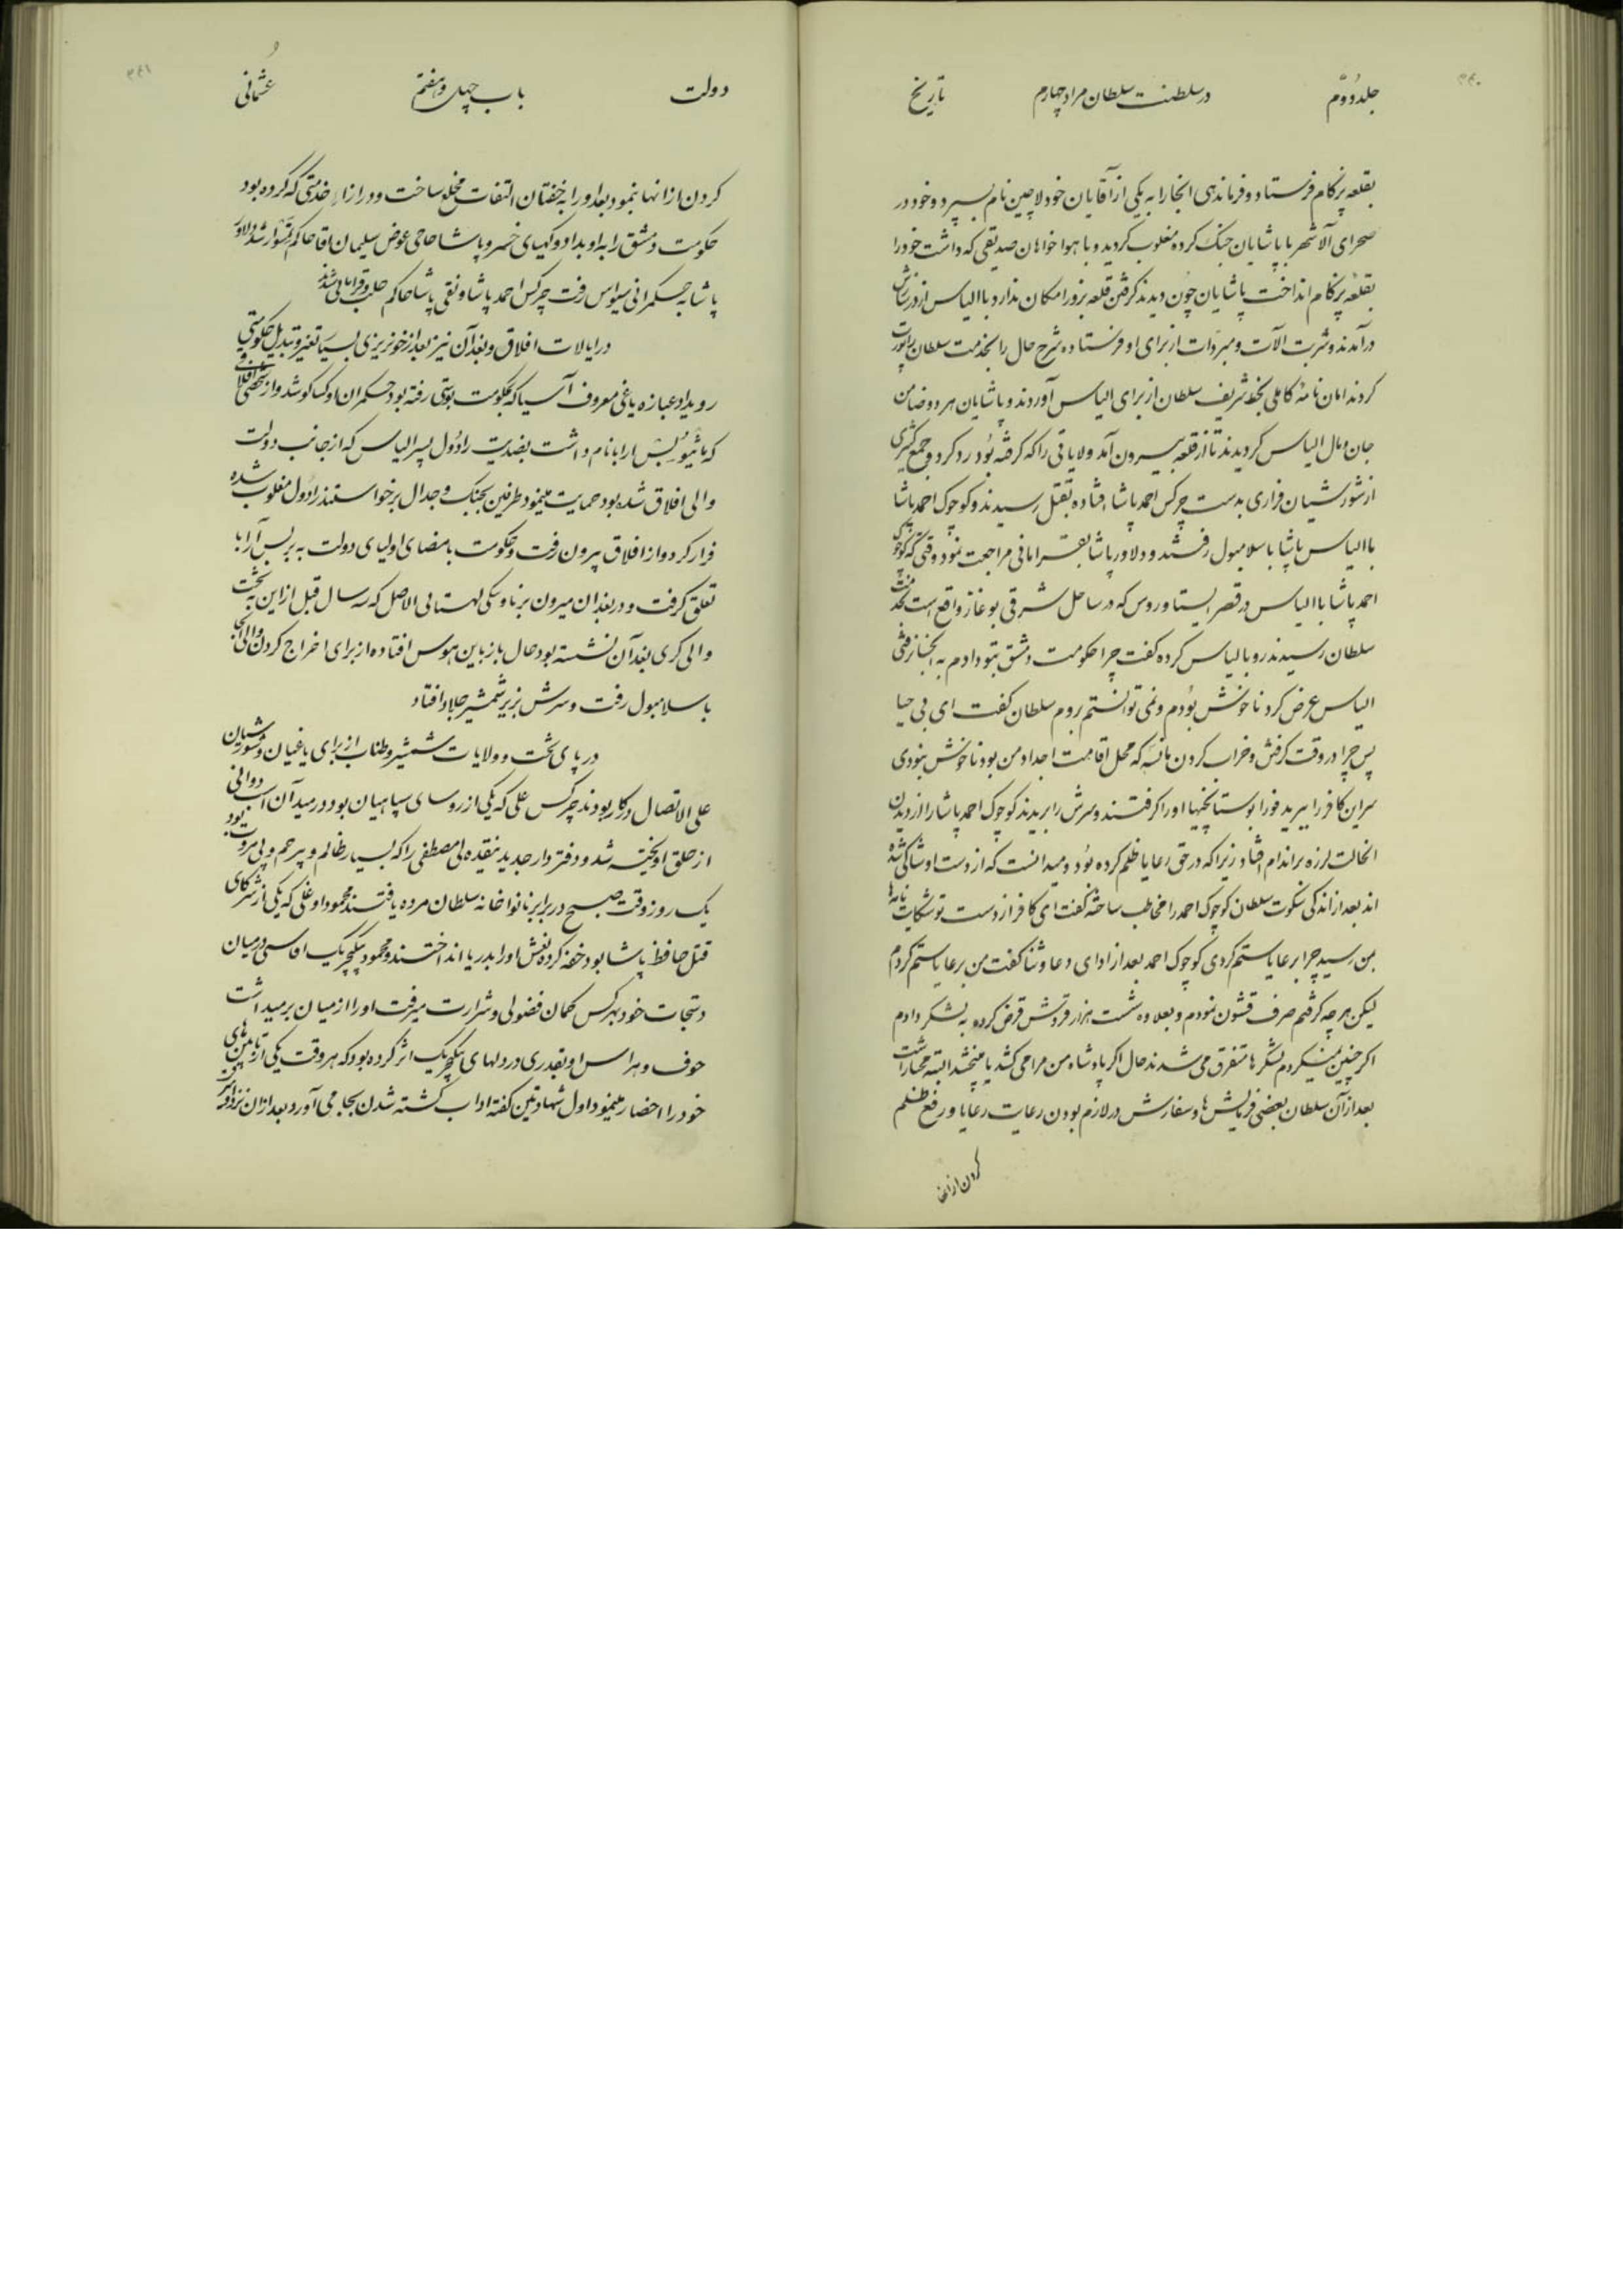 جلد دوّم در سلطنت سلطان مراد چهارم تاریخ
بقلعه پرکام فرستاد و فرماندهی انجارا به یکی از آقایان خود لاچین نام بسپرد و خود در
صحرای آلاشهر با پاشایان جنک کرده مغلوب کردید و با هواخواهان صدیقی که داشت خود را
بقلعه پرکام انداخت پاشایان چون دیدند کرفتن قلعه بزور امکان ندارد با الیاس از در سازش
درآمدند و شربت آلات و مبردات از برای او فرستاده شرح حال را بخدمت سلطان راپورت
کردند امان نامهٔ کاملی بخط شریف سلطان از برای الیاس آوردند و پاشایان هر دو ضامن
جان و مال الیاس کردیدند تا از قلعه بیرون آمد و لایاتی را که کرفته بود رد کرد و جمع کثیری
از شورشیان فراری بدست چرکس احمد پاشا افتاده بقتل رسیدند و کوچوک احمد پاشا
با الیاس پاشا باسلامبول رفتند و دلاور پاشا بقرامانی مراجعت نمود وقتی که کوچوک
احمد پاشا با الیاس در قصر ایستاوروس که در ساحل شرقی بوغاز واقع است بخدمت
سلطان رسیدند رو بالیاس کرده کفت چرا حکومت دمشق بتو دادم به انجا نرفتی
الیاس عرض کرد ناخوش بودم و نمی توانستم بروم سلطان کفت ای بی حیا
پس چرا در وقت کرفتن و خراب کردن مانسه که محل اقامت اجداد من بود ناخوش نبودی
سر این کافر را ببرید فورا بوستانجیها او را کرفتند و سرش را بریدند کوچوک احمد پاشا را از دیدن
انحالت لرزه براندام افتاد زیرا که در حق رعایا ظلم کرده بود و میدانست که از دست او شاکی شده
اند بعد از اندکی سکوت سلطان کوچوک احمد را مخاطب ساخته کفت ای کافر از دست تو شکایت نامه ها
بمن رسید چرا برعایا ستم کردی کوچوک احمد بعد از ادای دعا و ثنا کفت من برعایا ستم کردم
لیکن هر چه کرفتم صرف قشون نمودم و بعلاوه شصت هزار قروش قرض کرده به لشکر دادم
اکر چنین نمیکردم لشکرها متفرق می شدند حال اکر پادشاه من مرا می کشد یا میبخشد البته مختار است
بعد از آن سلطان بعضی فرمایش ها و سفارش در لازم بودن رعایت رعایا و رفع ظلم
کردن از انها
دولت باب چهل و هفتم عثمانی
کردن از انها نمود بعد او را به خفتان التفات مخلع ساخت و در ازاء خدمتی که کرده بود
حکومت دمشق را به او بداد و کهیای خسرو پاشا حاجی عوض سلیمان اقا حاکم تمسوار شد دلاور
پاشا به حکمرانی سیواس رفت چرکس احمد پاشا و نقی پاشا حاکم حلب و قرامانی شدند
در ایالات افلاق و بغدآن نیز بعد از خونریزی بسیار تغیر و تبدیل حکومتی
رویداد عبازه یاغی معروف آسیا که بحکومت بوسنی رفته بود حکمران اوکساکو شد و از شخصی افلاقی
که ماثیو بسارابا نام داشت بضدیت رادول پسر الیاس که از جانب دولت
والی افلاق شده بود حمایت مینمود طرفین بجنک و جدال برخواستند رادول مغلوب شده
فرار کرد و از افلاق بیرون رفت و حکومت بامضای اولیای دولت به بسارابا
تعلق کرفت و در بغدان میرون برناوسکی لهستانی الاصل که سه سال قبل از این بتخت
والی کری بغدآن نشسته بود حال باز باین هوس افتاده از برای اخراج کردن والی
باسلامبول رفت و سرش بزیر شمشیر جلاد افتاد
در پای تخت و ولایات شمشیر و طناب از برای یاغیان و شورشیان
علی الاتصال در کار بودند چرکس علی که یکی از روسای سپاهیان بود در میدآن اسب دوانی
از حلق اویخته شد و دفتردار جدید نیقده لی مصطفی را که بسیار ظالم و بیرحم و بی مروت بود
یک روز وقت صبح در برابر نانواخانه سلطان مرده یافتند محمود اوغلی که یکی از شرکای
قتل حافظ پاشا بود خفه کرده نعش او را بدریا انداختند و محمود ینکیچریک اقاسی در میان
دستجات خود بهر کس کمان فضولی و شرارت میرفت او را از میان برمیداشت
خوف و هراس او بقدری در دلهای ینکیچریک اثر کرده بود که هر وقت یکی از تابین های
خود را احضار مینمود اول شهادتین کفته اداب کشته شدن بجا می آورد بعد از ان نزد او